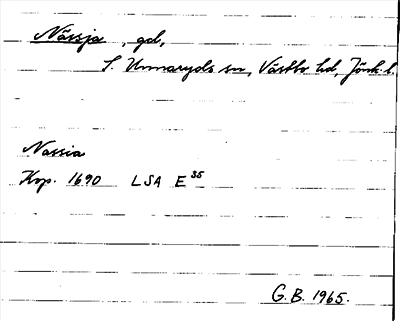 Nässja, gd,
S. Unnaryds sn, Västbo hd, Jönk. l.
Nassia
Kop. 1690 LSA E 35
G.B. 1965.